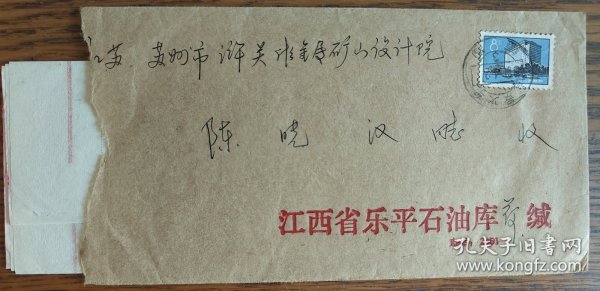 江苏 苏州市浒关非金属矿山设计院
8
陈晓汉 收
江西省乐平石油库 缄
孔夫子旧书网
www.kongfz.com